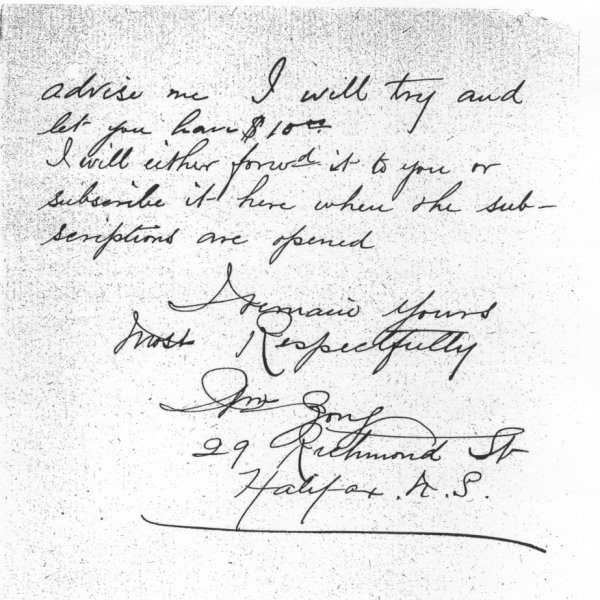 advise me I will try and
let you have $10.00
I will either forwd it to you or
subscribe it here when the sub-
scriptions are opened
I remain yours
Most Respectfully
Zong
29 Richmond St
Halifax. N. S.